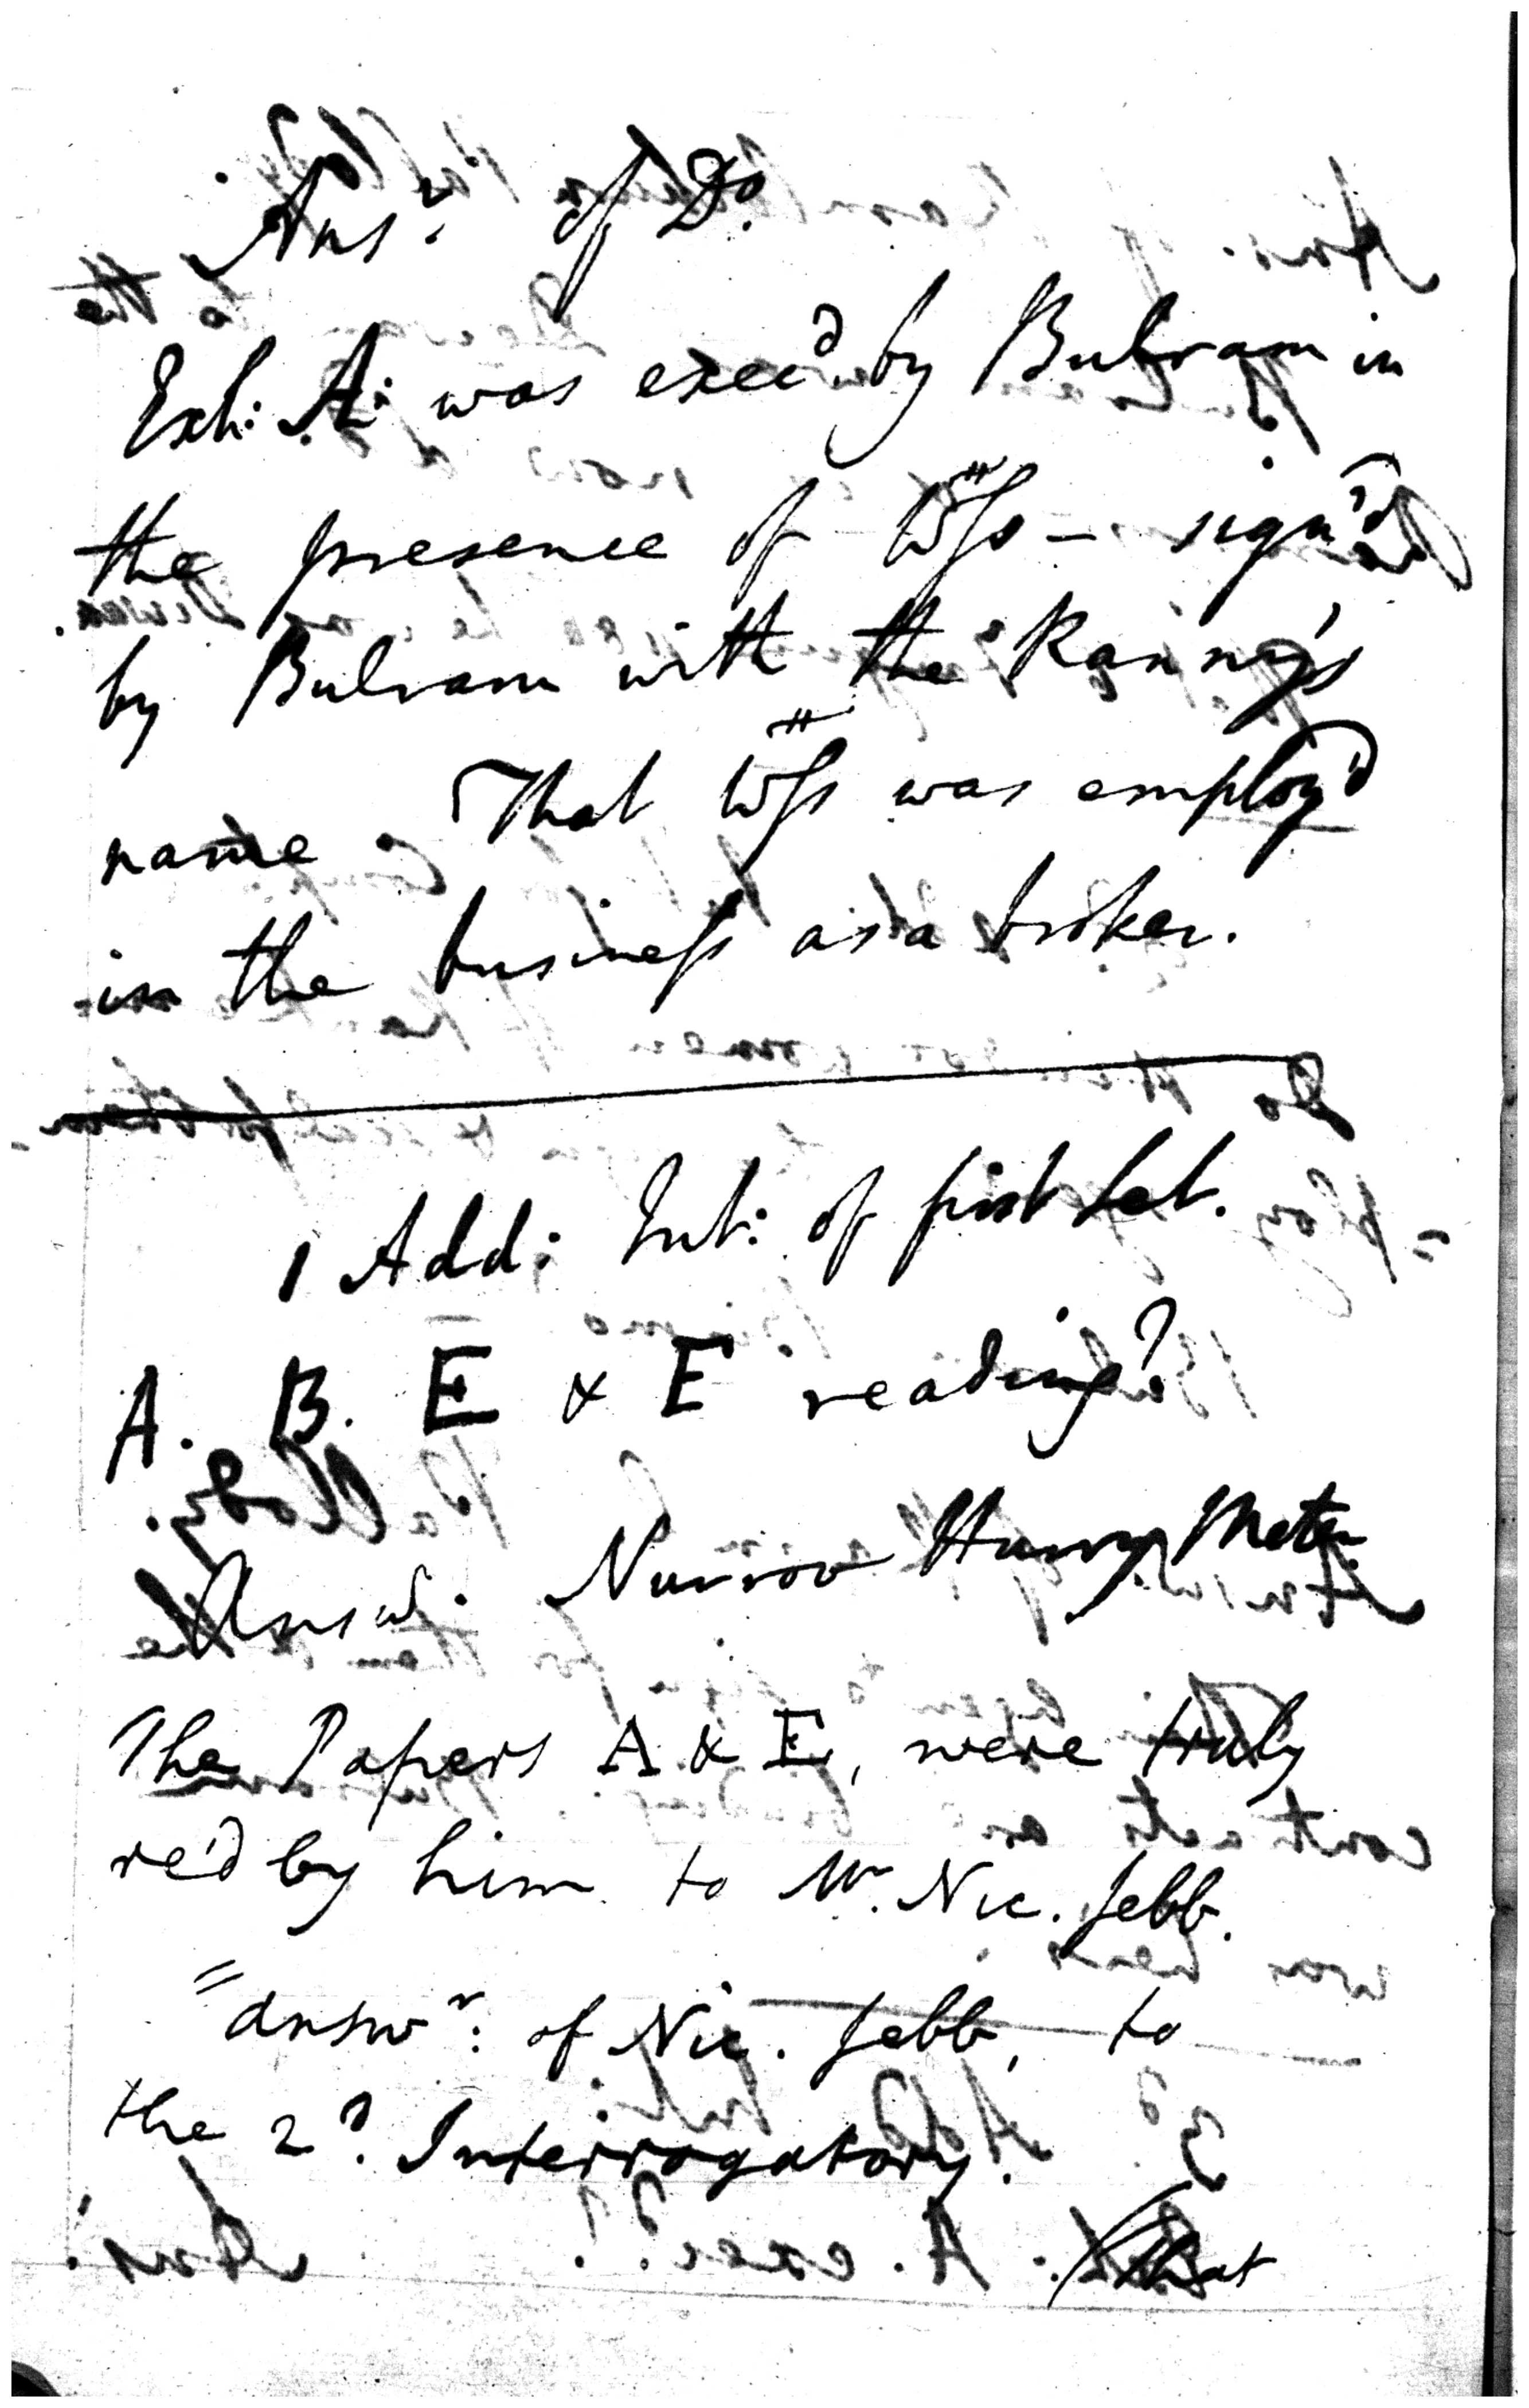 Ansr. of Do.
Exh: A: was exec'd by Bulram in
the presence of Wss — sign'd
by Bulram with the Ranny's
name That Wss was employ'd
in the business as a broker.
1 Add: Int: of first set.
A. B. E & E reading?
Answ. Hurry
The Papers A & E, were truly
re'd by him to Mr. Nic. Jebb.
answr: of Nic. Jebb, to
the 2d. Interrogatory.
That